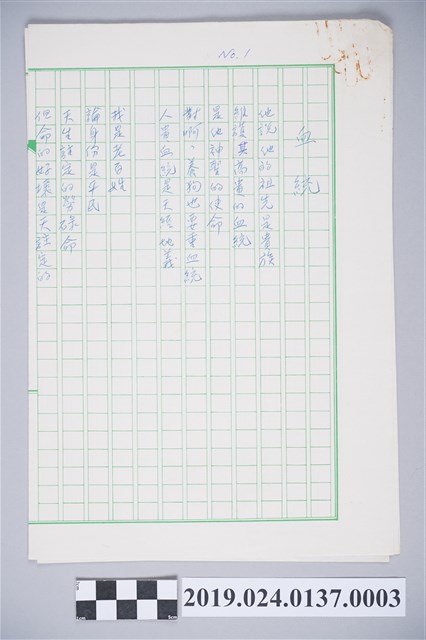 No.1
血統
他說他的祖先是貴族
維護其高貴的血統
是他神聖的使命
對啊，養狗也要重血統
人重血統是天經地義
我是老百姓
論身份是平民
天生註定的勞碌命
但命的好壞是天註定的
1cm
5cm
2019.024.0137.0003